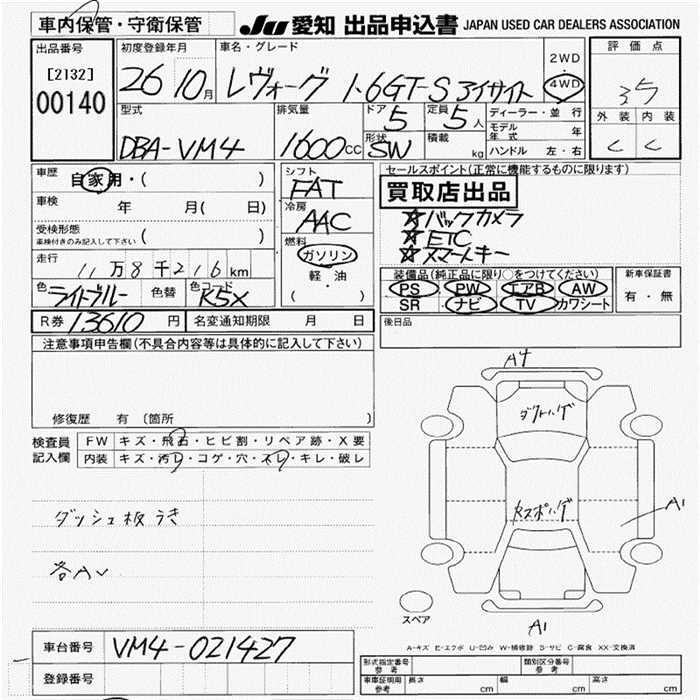 車内保管・守衛保管
JU 愛知 出品申込書 JAPAN USED CAR DEALERS ASSOCIATION
出品番号
[2132]
00140
初度登録年月
26 10月
車名・グレード
レヴォーグ 1.6GT-S アイサイト
2WD
4WD
評価点
3.5
外装 内装
C C
型式
DBA-VM4
排気量
1600cc
ドア
5
形状
SW
定員
5人
積載
kg
ディーラー・並行
モデル年式 年
ハンドル 左・右
車歴 自家用・( )
車検 年 月( 日)
受検形態
車検付きのみ記入して下さい ( )
走行 11万8千216km
色 ライトブルー 色替 色コード K5X
シフト
FAT
冷房
AAC
燃料
ガソリン
軽・油
( )
セールスポイント(正常に機能するものに限ります)
買取店出品
☆バックカメラ
☆ETC
☆スマートキー
装備品(純正品に限り○をつけてください)
PS PW エアB AW
SR ナビ TV カワシート
新車保証書
有・無
R券 13610円 名変通知期限 月 日
後日品
注意事項申告欄(不具合内容等は具体的に記入して下さい)
修復歴 有 (箇所 )
検査員
記入欄
FW キズ・飛石・ヒビ割・リペア跡・X要
内装 キズ・汚レ・コゲ・穴・スレ・キレ・破レ
ダッシュ板うき
各AU
A4
A1
スペア
A1
A-キズ E-エクボ U-凹み W-補修跡 S-サビ C-腐食 XX-交換済
車台番号 VM4-021427
登録番号
形式指定番号
参考
類別区分番号
参考
車庫証明用
参考
長さ cm 幅 cm 高さ cm